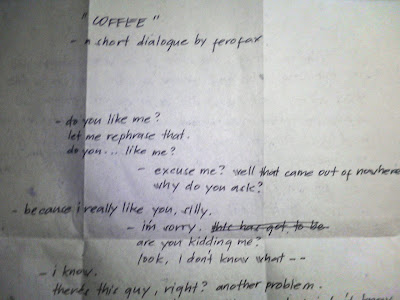 "COFFEE"
- a short dialogue by ferofax
- do you like me?
let me rephrase that.
do you... like me?
- excuse me? well that came out of nowhere
why do you ask?
- because i really like you, silly.
- i'm sorry. this has got to be
are you kidding me?
look, i don't know what --
- i know.
there's this guy, right? another problem.